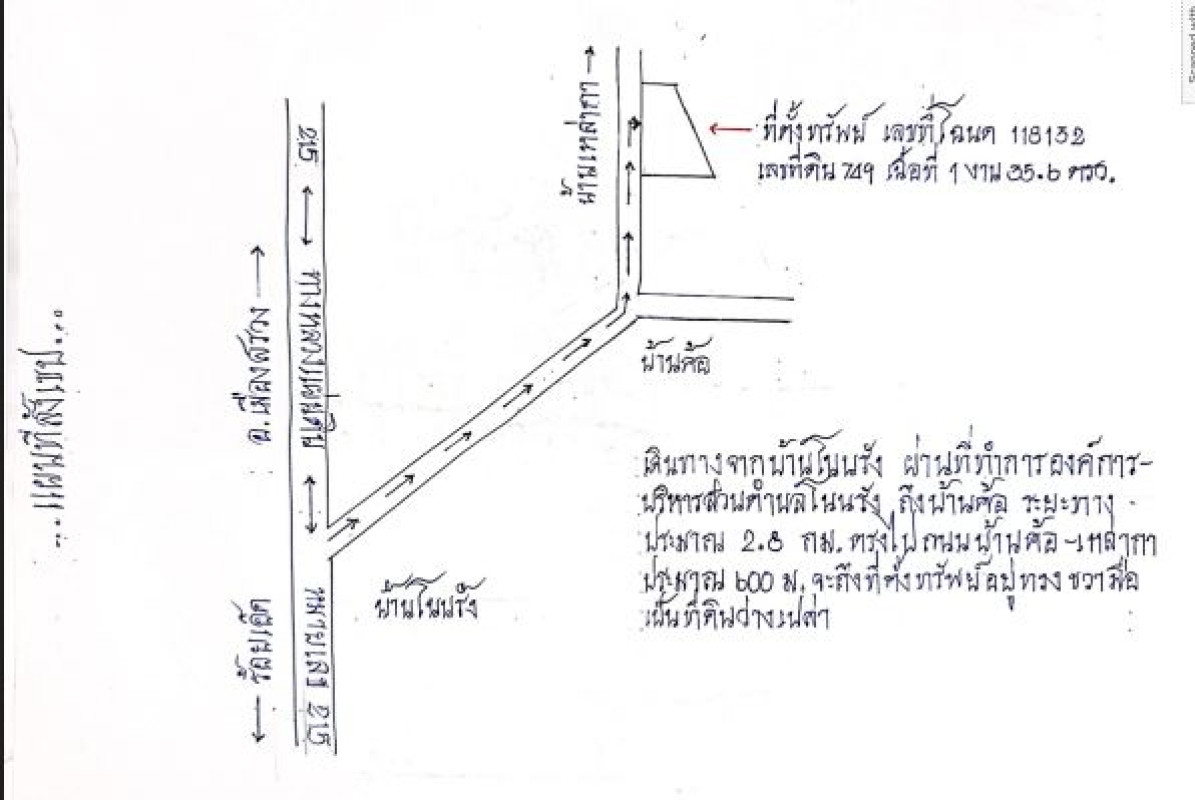 ...แผนที่สังเขป...
215 ⟷ ทางหลวงแผ่นดิน ⟷ หมายเลข 215
อ.เมืองสรวง →
← ร้อยเอ็ด
บ้านเหล่ากา →
ที่ตั้งทรัพย์ เลขที่โฉนด 118132
เลขที่ดิน 749 เนื้อที่ 1 งาน 35.6 ตรว.
บ้านค้อ
บ้านโนนรัง
เดินทางจากบ้านโนนรัง ผ่านที่ทำการองค์การ-
บริหารส่วนตำบลโนนรัง ถึงบ้านค้อ ระยะทาง
ประมาณ 2.8 กม. ตรงไปถนนบ้านค้อ-เหล่ากา
ประมาณ 600 ม. จะถึงที่ตั้งทรัพย์อยู่ทางขวามือ
เป็นที่ดินว่างเปล่า
Scanned with